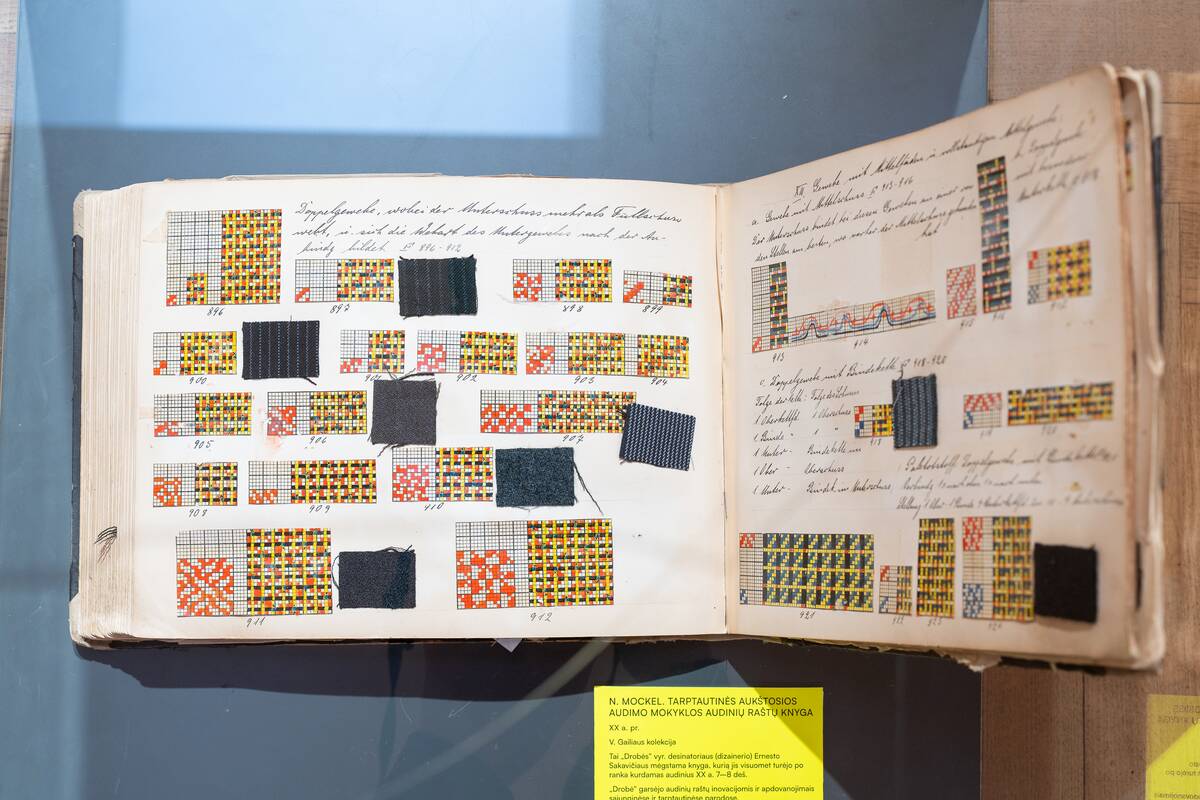 Doppelgewebe, wobei der Unterschuss mehr als Füllschuss
webt, u. sich die Webart des Untergewebes nach der An-
bildet № 896-912
896
897
898
899
900
901
902
903
904
905
906
907
908
909
910
911
912
XII. Gewebe mit Mittelfaden u. vollständigem Mittelgewebe.
a. Gewebe mit Mittelschuss № 913-916
Der Unterschuss bindet bei diesen Geweben an einer von
den Stellen am besten, wo vorher der Mittelschuss gebunden
hat
b. Doppelgewebe
mit
913
914
915
916
917
c. Doppelgewebe mit Bindekette № 918-920
Folge der Kette: Folge der Schüsse
1 Oberkettfd. 1 Oberschuss
1 Binde " 1 "
1 Unter- Bindekette im
1 Ober- Oberschuss
1 Unter- Bindet im Unterschuss
918
919
920
921
922
923
924
N. MOCKEL. TARPTAUTINĖS AUKŠTOSIOS
AUDIMO MOKYKLOS AUDINIŲ RAŠTŲ KNYGA
XX a. pr.
V. Gailiaus kolekcija
Tai „Drobės" vyr. desinatoriaus (dizainerio) Ernesto
Sakavičiaus mėgstama knyga, kurią jis visuomet turėjo po
ranka kurdamas audinius XX a. 7–8 deš.
„Drobė" garsėjo audinių raštų inovacijomis ir apdovanojimais
sąjunginėse ir tarptautinėse parodose.